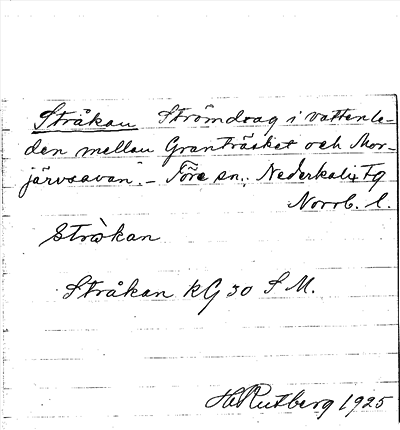 Stråkan Strömdrag i vattenle-
den mellan Granträsket och Mor-
järvsavan". - Töre sn., Nederkalix tg
Norrb. l.
stråkan
Stråkan kG 30 S M.
H Rutberg 1925